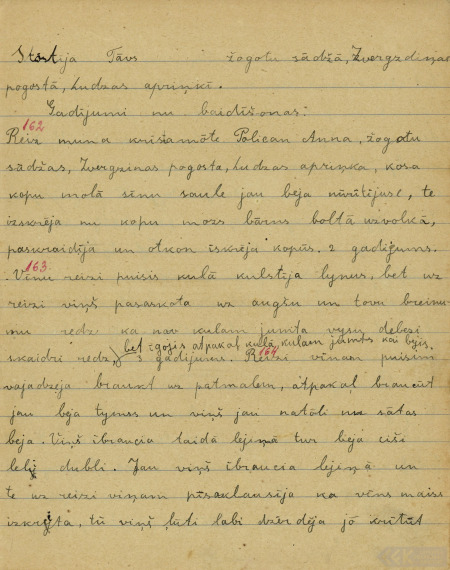 Stāstija Tāvs žogotu sādžā, Zvergzdiņas
pogostā, Ludzas apriņkī.
Gadījumi nu baidīšonas:
162
Reiz muna kristamōte Polican Anna, žogotu
sādžas, Zvergzinas pogosta, Ludzas apriņka, kosa
kopu molā sīnu saule jau beja nūrītējuse, te
izskrēja nu kopu mozs bārns boltā uzvolkā,
paskraidīja un otkon īskrēja kopūs. 2 gadījums.
163
Vīnu reizi puisis kulā kulstīja lynus, bet uz
reizi viņš pasaskota uz augšu un tovu breinu-
mu redz ka nav kulam jumta vysu debesi
skaidri redz, bet īgojis atpakaļ kulā kulam jumts kai bejis.
3 gadījums. 164 Reizi vīnam puisim
vajadzēja braukt uz patmalem, atpakaļ braucūt
jau beja tymss un viņš jau natōli nu sātas
beja. Viņš ībraucia taidā lejeņā tur beja ciši
leli dubli. Jau viņš ībraucia lejeņā un
te uz reizi viņam pīsaklausīja ka vīns maiss
izkryta, tū viņš ļūti labi dzērdēja jō krītūt